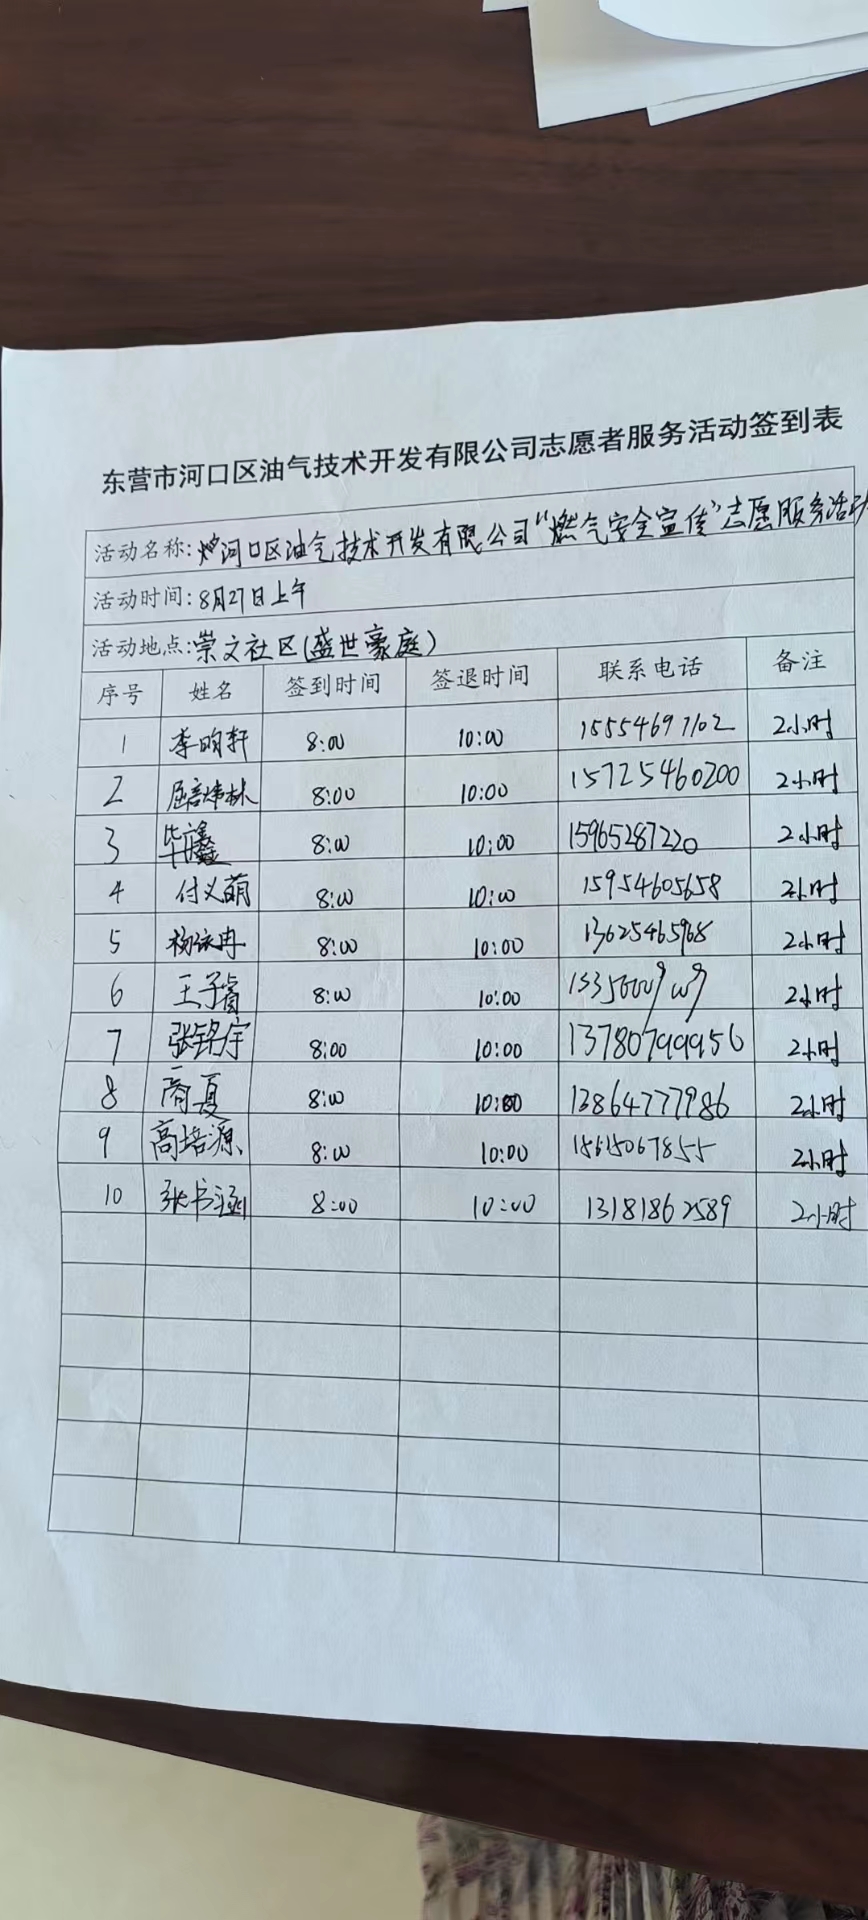 东营市河口区油气技术开发有限公司志愿者服务活动签到表
活动名称:河口区油气技术开发有限公司“燃气安全宣传”志愿服务活动
活动时间:8月27日上午
活动地点:崇文社区(盛世豪庭)
序号 姓名 签到时间 签退时间 联系电话 备注
1 李昀轩 8:00 10:00 15554697102 2小时
2 8:00 10:00 15725460200 2小时
3 8:00 10:00 15965287220 2小时
4 付义萌 8:00 10:00 15954605658 2小时
5 杨依冉 8:00 10:00 13625465968 2小时
6 王子睿 8:00 10:00 2小时
7 张铭宇 8:00 10:00 13780799956 2小时
8 商夏 8:00 10:00 13864777986 2小时
9 高培源 8:00 10:00 15615067855 2小时
10 张书涵 8:00 10:00 13181862589 2小时